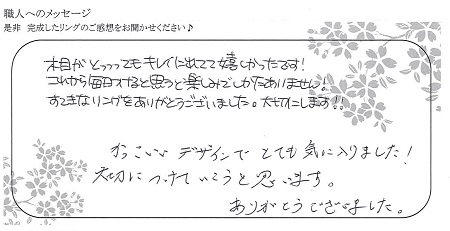 職人へのメッセージ
是非 完成したリングのご感想をお聞かせください♪
木目がとっっってもキレイに出てて嬉しかったです!
これから毎日すると思うと楽しみでしかたありません!
すてきなリングをありがとうございました。大切にします!!
かっこいいデザインでとても気に入りました!
大切につけていこうと思います。
ありがとうございました。